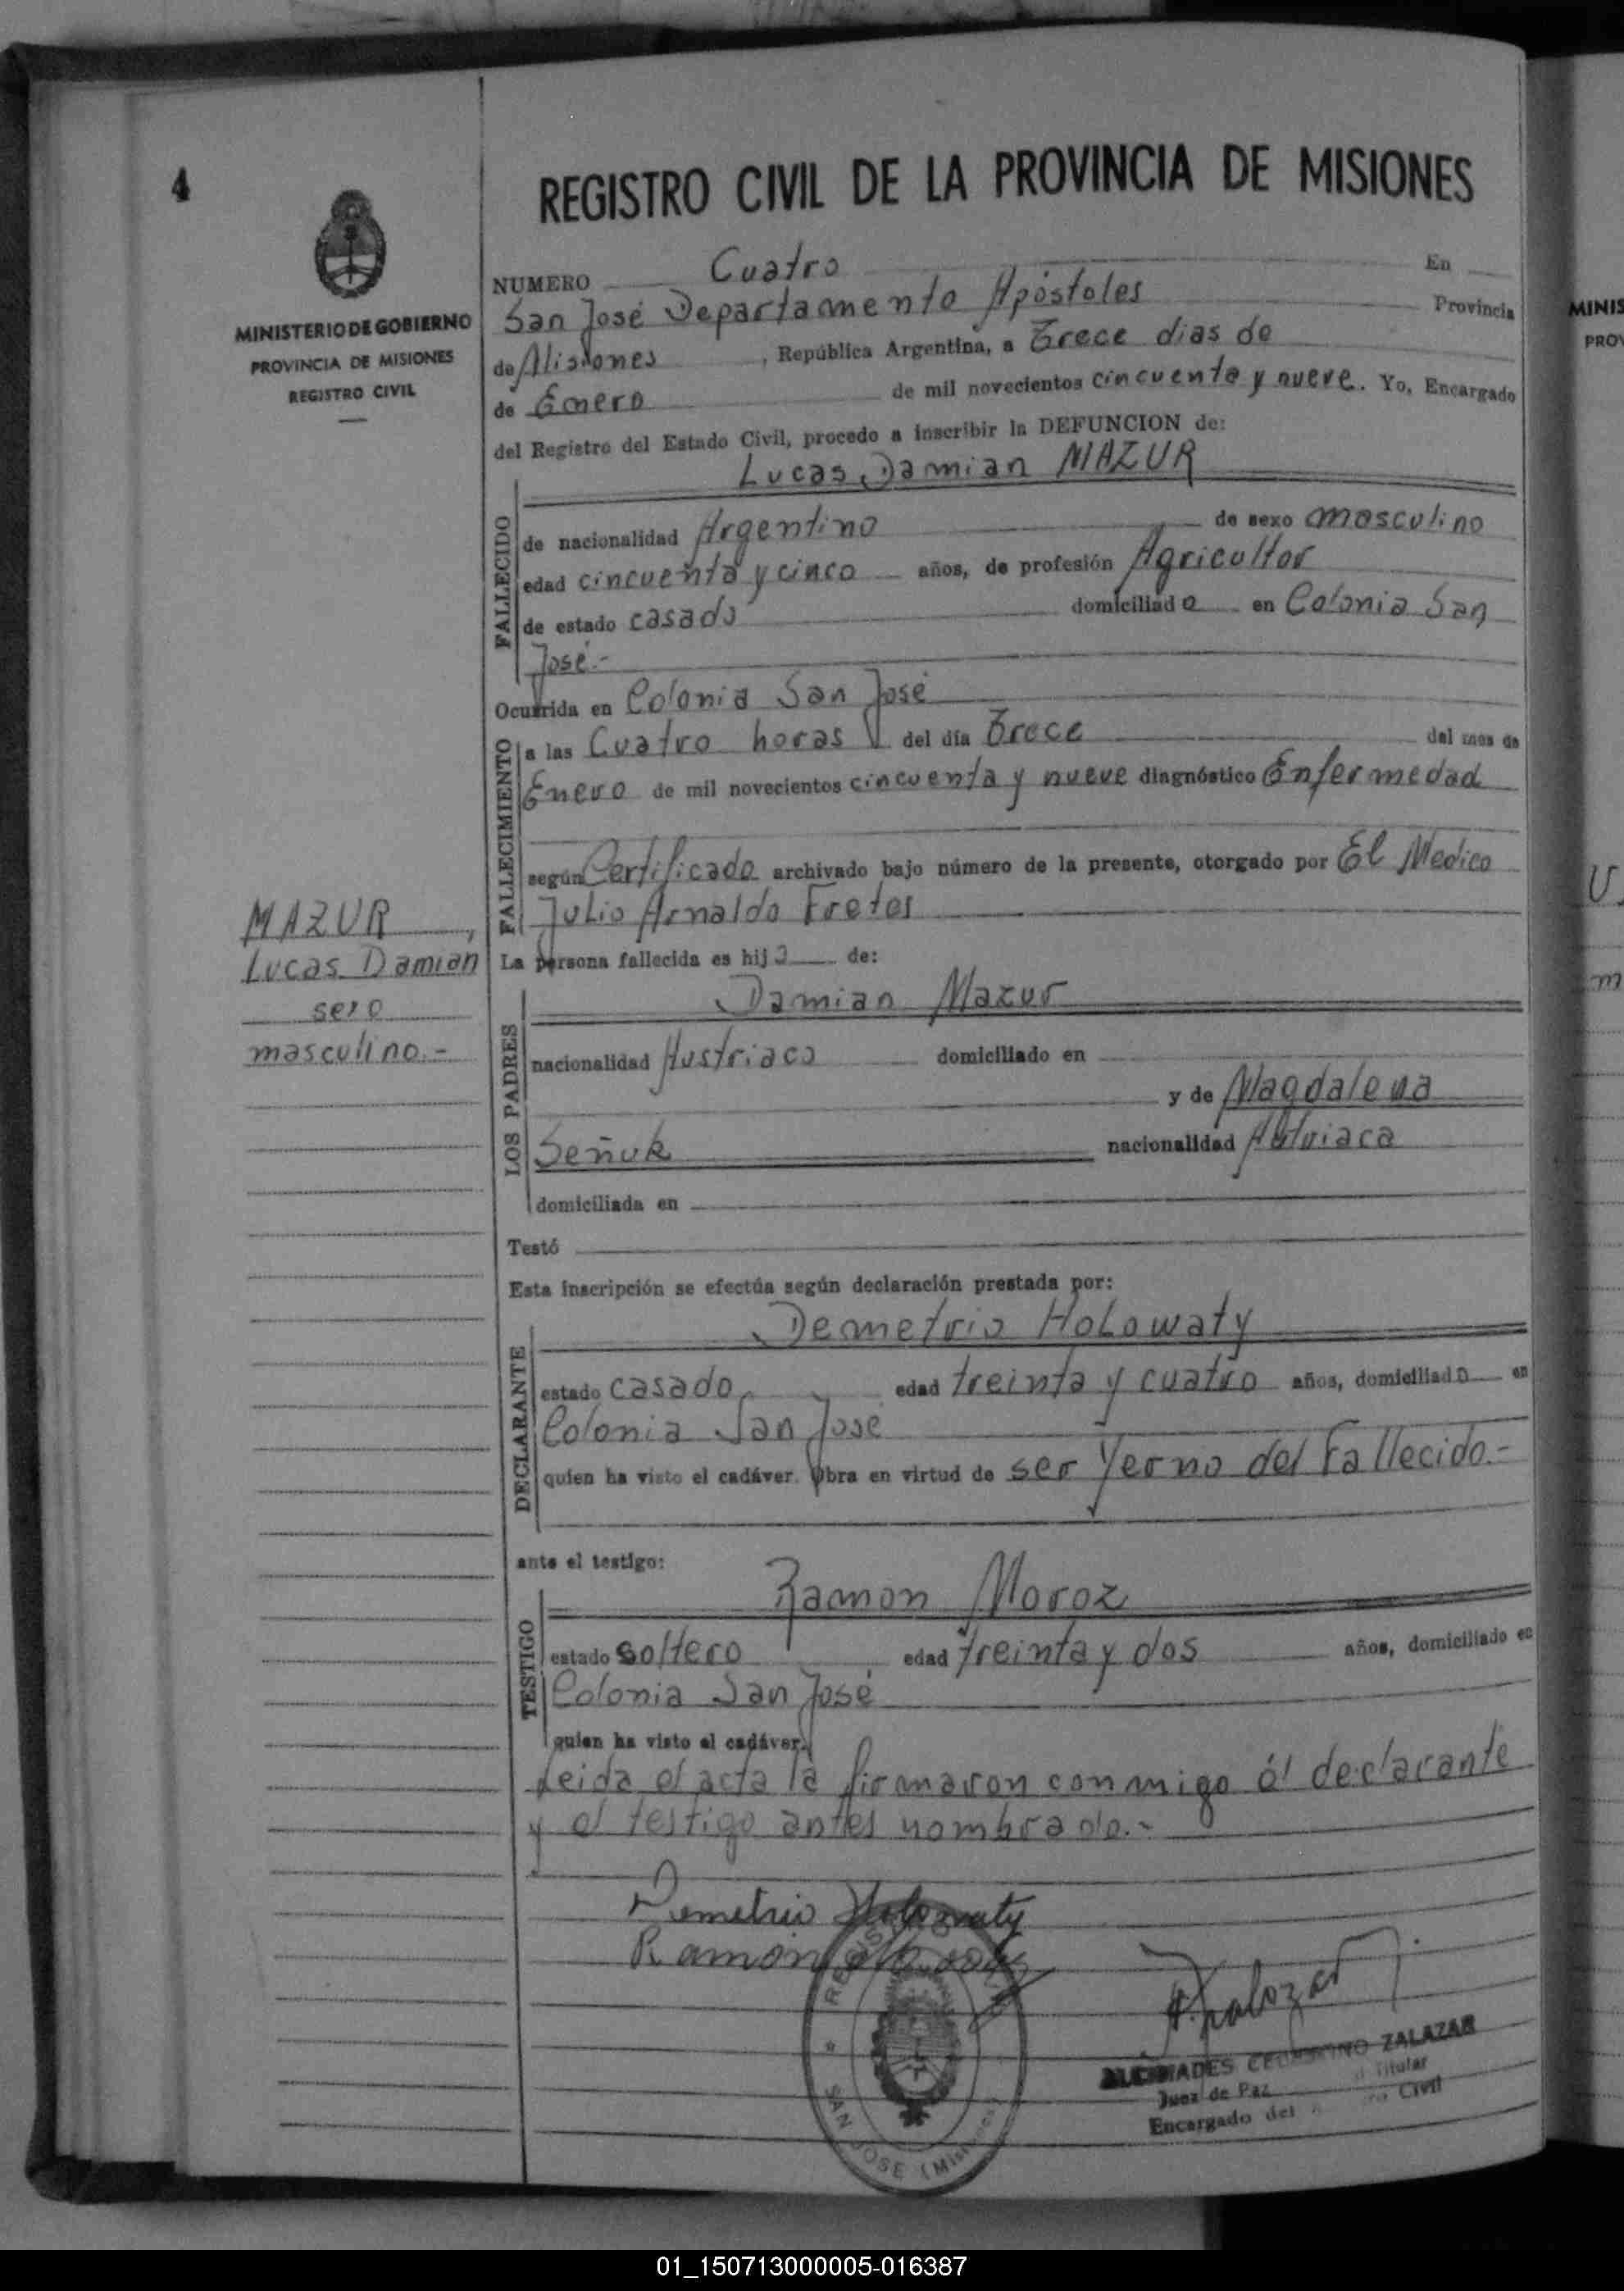 4
REGISTRO CIVIL DE LA PROVINCIA DE MISIONES
MINISTERIO DE GOBIERNO
PROVINCIA DE MISIONES
REGISTRO CIVIL
NUMERO Cuatro En
San José Departamento Apóstoles Provincia
de Misiones, República Argentina, a Trece dias de
de Enero de mil novecientos cincuenta y nueve. Yo, Encargado
del Registro del Estado Civil, procedo a inscribir la DEFUNCION de:
Lucas Damian MAZUR
FALLECIDO
de nacionalidad Argentino de sexo masculino
edad cincuenta y cinco años, de profesión Agricultor
de estado casado domiciliado en Colonia San
José.-
Ocurrida en Colonia San José
FALLECIMIENTO
a las Cuatro horas del día Trece del mes de
Enero de mil novecientos cincuenta y nueve diagnóstico Enfermedad
según Certificado archivado bajo número de la presente, otorgado por El Medico
Julio Arnaldo Fretes
MAZUR,
Lucas Damian
sexo
masculino.-
La persona fallecida es hijo de:
LOS PADRES
Damian Mazur
nacionalidad Austriaco domiciliado en
y de Magdalena
Señuk nacionalidad Autriaca
domiciliada en
Testó
Esta inscripción se efectúa según declaración prestada por:
DECLARANTE
Demetrio HoLowaty
estado casado edad treinta y cuatro años, domiciliado en
Colonia San José
quien ha visto el cadáver. Obra en virtud de ser Yerno del Fallecido.-
ante el testigo:
TESTIGO
Ramon Moroz
estado soltero edad treinta y dos años, domiciliado en
Colonia San José
quien ha visto el cadáver.
Leida el acta la firmaron conmigo el declarante
y el testigo antes nombrado.-
Demetrio Holowaty
Ramon
ZALAZAR
Juez de Paz Titular
Encargado del Civil
SAN JOSE (Misiones)
MINIS
PROV
01_150713000005-016387